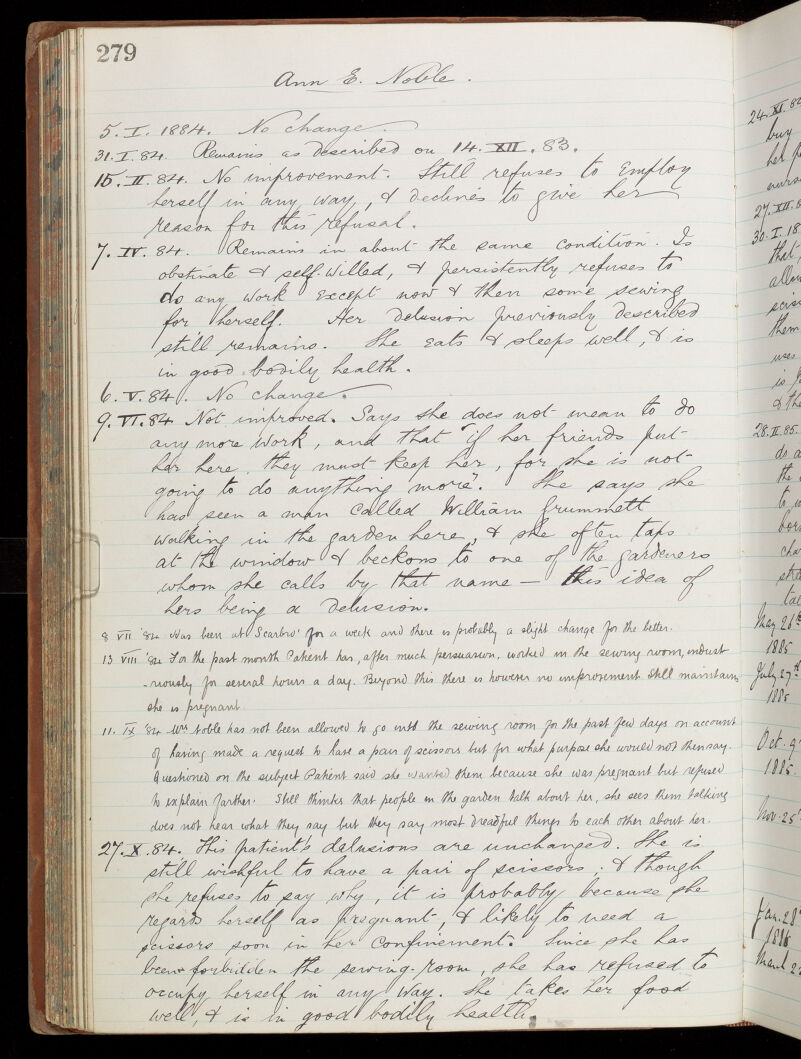 279
Ann E. Noble.
5. I. 1884. No change.
31. I. 84. Remains as described on 14. XII. 83.
15. II. 84. No improvement. Still refuses to employ
herself in any way, & declines to give her
reason for this refusal.
7. IV. 84. Remains in about the same condition. Is
obstinate & self-willed, & persistently refuses to
do any work except now & then some sewing
for herself. Her delusion previously described
still remains. She eats & sleeps well, & is
in good bodily health.
6. V. 84. No change.
9. VI. 84 Not improved. Says she does not mean to do
any more work, and that "if her friends put
her here, they must keep her, for she is not
going to do anything more". She says she
has seen a man called William Grummett
walking in the garden here, & she often taps
at the window & beckons to one of the gardeners
whom she calls by that name — this idea of
hers being a delusion.
8 VII '84 Has been at Scarbro' for a week and there is probably a slight change for the better.
13 VIII '84 For the past month Patient has, after much persuasion, worked in the sewing room, indust
-riously for several hours a day. Beyond this there is however no improvement. Still maintains
she is pregnant.
11. IX '84 Mrs Noble has not been allowed to go into the sewing room for the past few days on account
of having made a request to have a pair of scissors but for what purpose she would not then say.
Questioned on the subject Patient said she wanted them because she was pregnant but refused
to explain farther. Still thinks that people in the garden talk about her, she sees them talking
does not hear what they say but they say most dreadful things to each other about her.
27. X. 84. This patient's delusions are unchanged. She is
still wishful to have a pair of scissors; & though
she refuses to say why, it is probably because she
regards herself as pregnant, & likely to need a
scissors soon in her confinement. Since she has
been forbidden the sewing-room, she has refused to
occupy herself in any way. She takes her food
well, & is in good bodily health.
24. XI. 84
buy
her
27. XII. 8
30. I. 18
that
them
uses
& th
28. II. 85.
do a
the
to
May 26th
1885
July 27th
1885
Oct. 9
1885.
Nov. 25
Jan. 28
1886
March 2